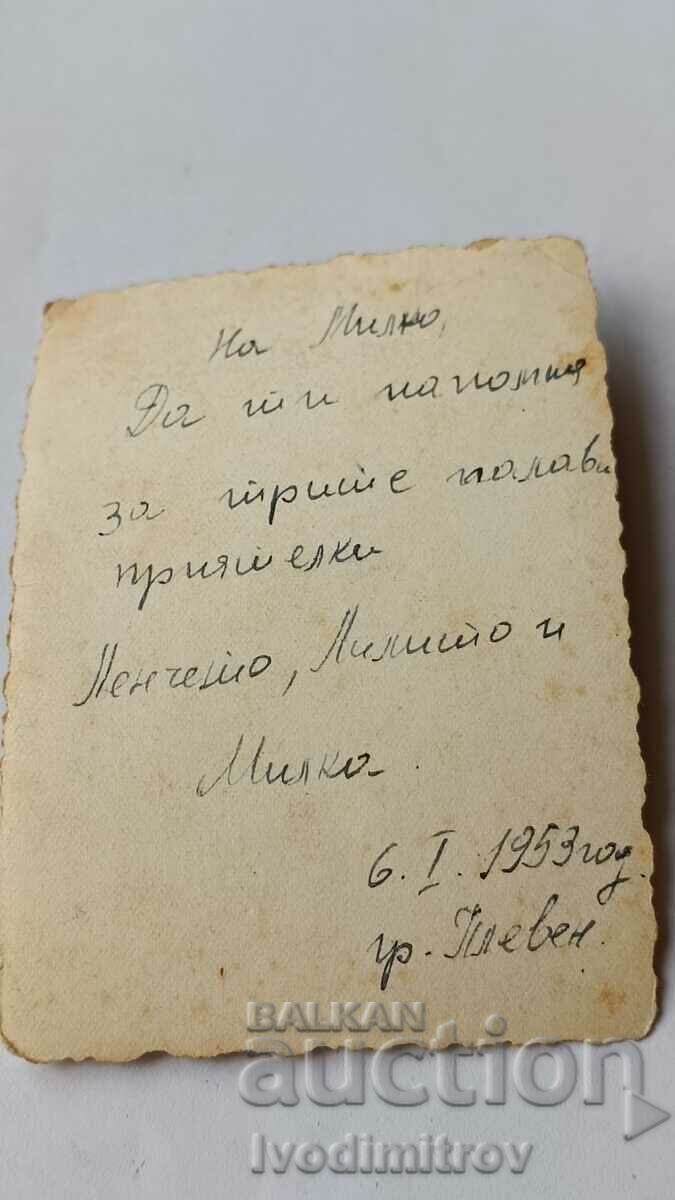 На Милко,
Да ти напомня
за трите палави
приятелки
Ленчето, Лилито и
Милка.
6. I. 1953 год.
гр. Плевен.
BALKAN
auction
Ivodimitrov